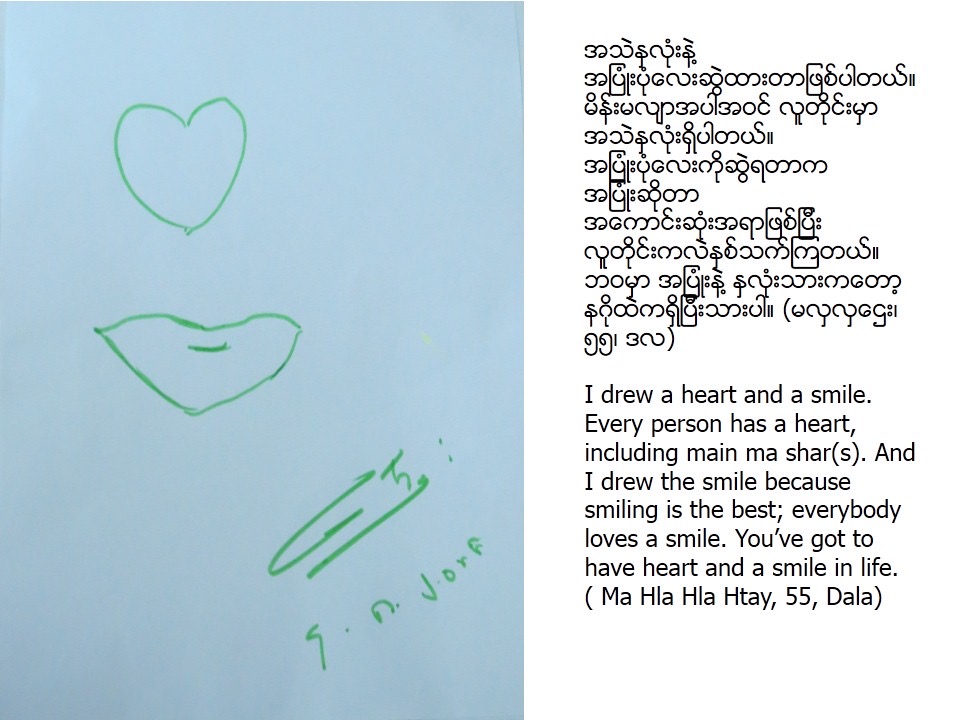 အသဲနလုံးနဲ့
အပြုံးပုံလေးဆွဲထားတာဖြစ်ပါတယ်။
မိန်းမလျာအပါအဝင် လူတိုင်းမှာ
အသဲနလုံးရှိပါတယ်။
အပြုံးပုံလေးကိုဆွဲရတာက
အပြုံးဆိုတာ
အကောင်းဆုံးအရာဖြစ်ပြီး
လူတိုင်းကလဲနှစ်သက်ကြတယ်။
ဘဝမှာ အပြုံးနဲ့ နှလုံးသားကတော့
နဂိုထဲကရှိပြီးသားပါ။ (မလှလှဌေး၊
၅၅၊ ဒလ)
I drew a heart and a smile.
Every person has a heart,
including main ma shar(s). And
I drew the smile because
smiling is the best; everybody
loves a smile. You’ve got to
have heart and a smile in life.
( Ma Hla Hla Htay, 55, Dala)